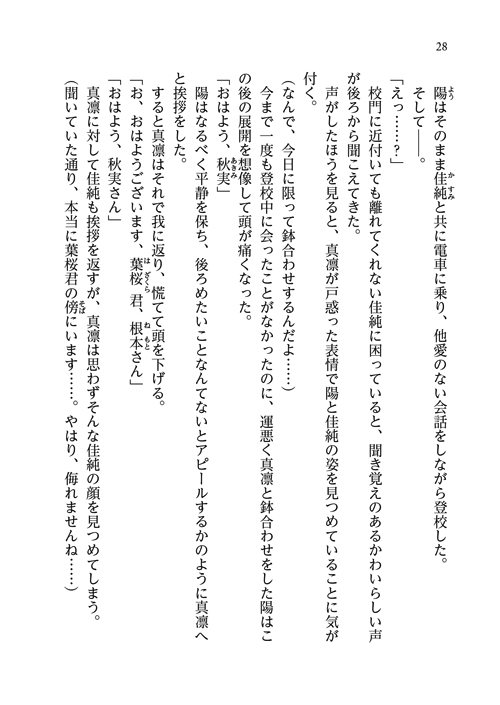 28
陽はそのまま佳純と共に電車に乗り、他愛のない会話をしながら登校した。
よう
か すみ
そして――。
「えっ……？」
校門に近付いても離れてくれない佳純に困っていると、聞き覚えのあるかわいらしい声
が後ろから聞こえてきた。
声がしたほうを見ると、真凛が戸惑った表情で陽と佳純の姿を見つめていることに気が
付く。
（なんで、今日に限って鉢合わせするんだよ……）
今まで一度も登校中に会ったことがなかったのに、運悪く真凛と鉢合わせをした陽はこ
の後の展開を想像して頭が痛くなった。
「おはよう、秋実」
あきみ
陽はなるべく平静を保ち、後ろめたいことなんてないとアピールするかのように真凛へ
と挨拶をした。
すると真凛はそれで我に返り、慌てて頭を下げる。
「お、おはようございます、葉桜君、根本さん」
は ざくら
ね もと
「おはよう、秋実さん」
真凛に対して佳純も挨拶を返すが、真凛は思わずそんな佳純の顔を見つめてしまう。
（聞いていた通り、本当に葉桜君の傍にいます……。やはり、侮れませんね……）
そば